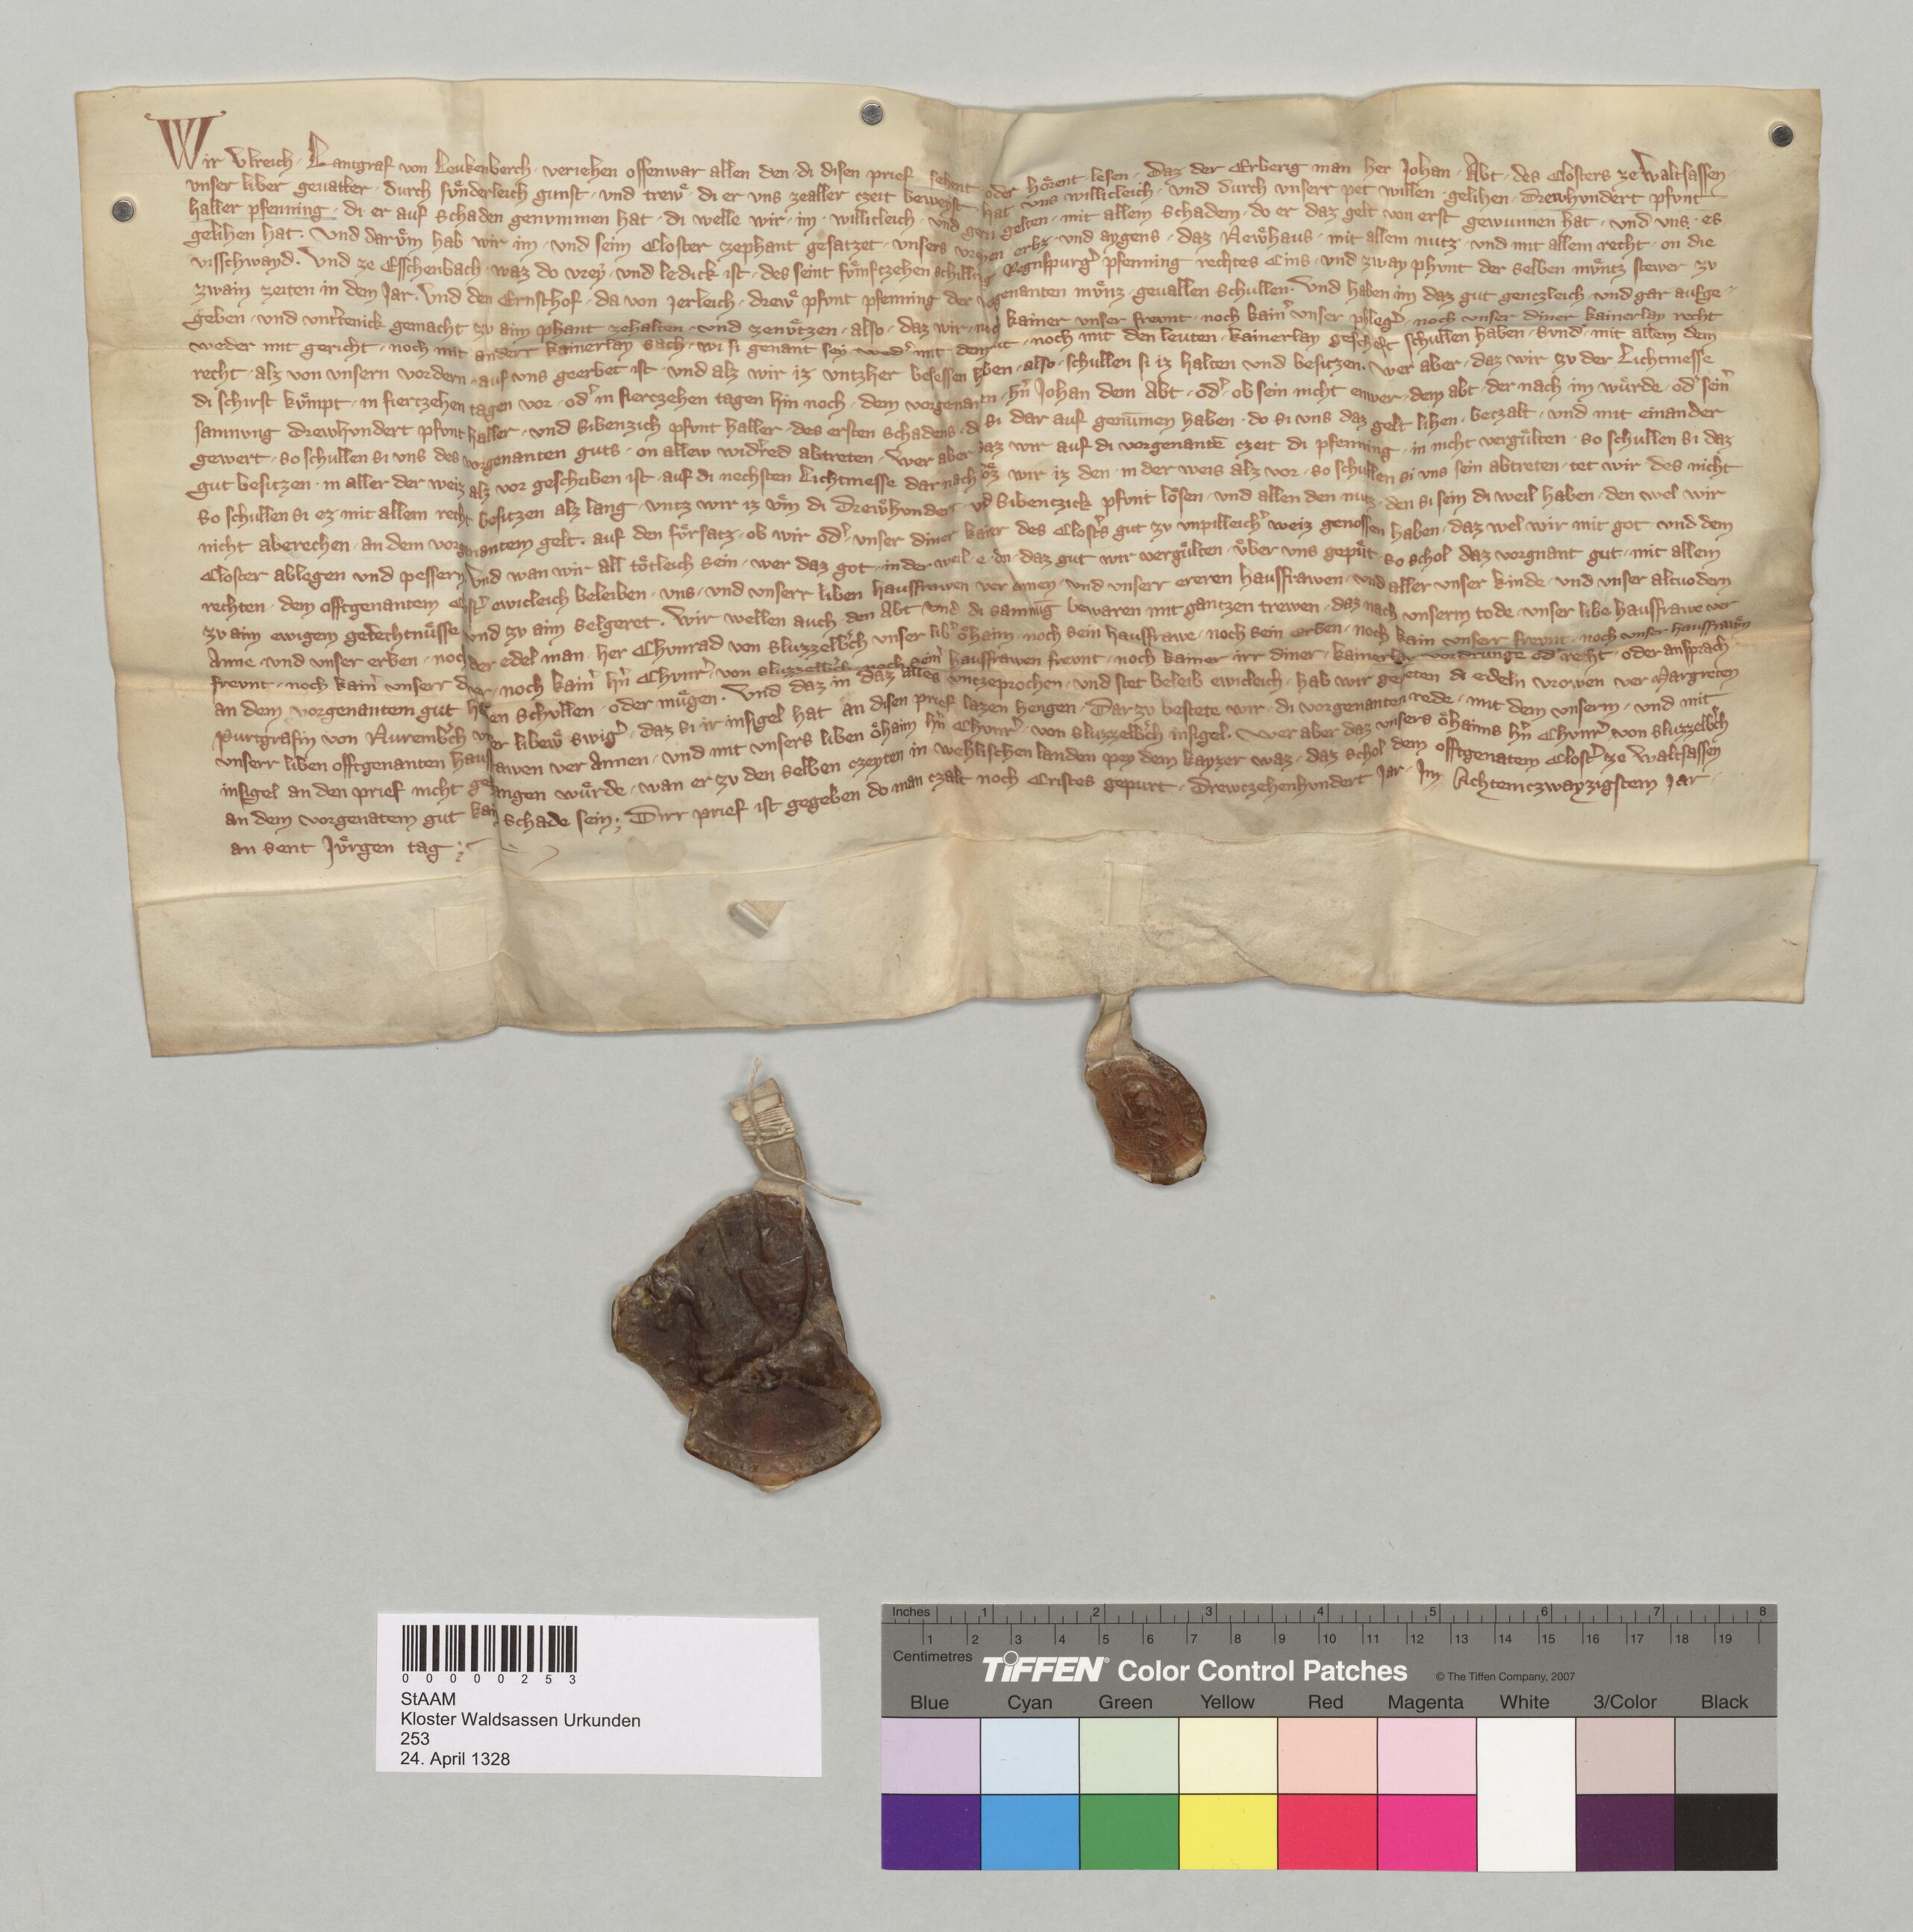 Wir Vlreich · Lantgraf von Leukenberch · veriehen offenwar allen den · di disen prief sehent oder hoͤrent lesen · Daz der Erberig man her Johan · Abt · des Closters ze Waltsassen
vnser liber geuatter · durch suͤnderleich gunst · vnd trewͤ · di er vns zealler czeit beweyst hat vns willicleich · vnd durch vnserr pet willen · gelihen · Drewhvndert pfvnt
haller pfenning · di er auf schaden genvmmen hat · di welle wir · im · willicleich · vnd gern gelten · mit allem schadem · do er daz gelt von erst gewunnen hat · vnd vns · es
gelihen hat · Vnd darvͤm hab wir im · vnd seim Closter czephant gesatzet · vnsers vreyen erbz · vnd aygens · daz Newͤhaus · mit allem nutz · vnd mit allem recht · on die
visschwayd · Vnd ze Esschenbach · waz do vrey · vnd ledick ist · des seint fvͤnftzehen schilling Regnspurgˀ pfenning rechtes Cins · vnd zway phvnt der selben mvͤntz stewer zv
zwain zeiten in dem Jar · Vnd den Ernsthof · da von Jerleich · drewͤ pfvnt pfenning der vogenanten mvͤnz · geuallen schullen · Vnd haben im daz gut genczleich · vnd gar aufge
geben · vnd vntˀtenick gemacht zv aim phant zehalten · vnd zenvͤtzen · also · daz wir · noch kainer vnser frevnt · noch kainˀ vnser phlegˀ · noch vnser diner kainerlay recht
weder mit gericht · noch mit anderr kainerlay sach · wi si genant sey · wedˀ mit dem gut · noch mit den leuten · kainerlay gescheft schullen haben · Svnd · mit allem dem
recht · alz von vnsern vordern · auf vns geerbet ist · vnd alz wir iz vntzher besessen haben · also · schullen si iz halten vnd besitzen · Wer aber · daz wir zv der Lichtmesse
di schirst kvͤmpt · in fiertzehen tagen vor · odˀ in fiertzehen tagen hin noch · dem vorgenanten · hn̄ Johan dem Abt · odˀ · ob sein nicht enwer · dem abt · der nach im wuͤrde · odˀ seinˀ
samnvng drewhvndert pfvnt haller · vnd Sibenzich pfvnt haller · des ersten schadens · di si dar auf genūmen haben · do si vns daz gelt lihen · beczalt · vnd mit einander
gewert · so schullen si vns des vorgenanten guts · on allew widˀred abtreten · Wer aber daz wir auf di vorgenantē czeit di pfenning · in nicht verguͤlten · so schullen si daz
gut besitzen · in aller der weiz alz vor geschriben ist · auf di nechsten Lichtmesse dar nach loͤz wir iz den · in der weis alz vor · so schullen si vns sein abtreten · tet wir des nicht
So schullen si ez · mit allem recht besitzen alz lang · vntz wir iz vͤm di Drewͤhvndert vnd Sibenczick pfvnt loͤsen · vnd allen den nutz · den si sein di weil haben · den wel wir
nicht aberechen · an dem vorgenantem gelt · auf den fuͤrsatz · ob wir odˀ · vnser diner kainer des Clostˀs gut zv vnpilleichˀ weiz genossen haben · daz wel wir mit got vnd dem
Closter ablegen vnd pessern · Vnd wan wir all toͤtleich sein · wer daz got · in der weil · e · dn · daz gut wir verguͤlten · vͤber vns gepuͤtt · so schol daz vorgnant gut · mit allem
rechten · dem offtgenantem Clostˀ ewicleich beleiben · vns · vnd vnserr liben hausfrawen ver Annen · vnd vnserr ereren hausfrawen · vnd aller vnser kinde · vnd vnser altuodern
zv aim ewigem gedechtnuͤsse vnd zv aim selgeret · Wir wellen auch · den Abt · vnd di samnūg bewaren mit gantzen trewen · daz nach vnserm tode · vnser libe hausfrawe ver
Anne · vnd vnser erben · noch der edel man · her Chvnrad von sluzzelbˀch vnser libˀ oͤhaim · noch sein hausfrawe · noch sein erben · noch kain vnserr frevnt · noch vnser hausfrawͤn
frevnt · noch kainˀ vnserr diner · noch kainˀ hn̄ Chvnrˀ · von sluzzelbˀch · noch seinˀ hausfrawen frevnt · noch kainer irr diner · kainerlay vordrunge odˀ recht · oder ansprach
an dem vorgenantem gut haben schullen · oder muͤgen · Vnd daz in daz alles vntzeprochen · vnd stet beleib ewicleich · hab wir gepeten di edeln vrowen ver Margreten
Purtgrafin von Nurembˀch vnser libewͤ swigˀ · daz si ir insigel hat an disen prief lazen hengen · Dar zv bestete wir · di vorgenanten rede · mit dem vnserm · vnd mit
vnserr liben offtgenanten hausfrawen ver Annen · vnd mit vnsers liben oͤhaim hn̄ Chvnrˀ · von sluzzelbˀch insigel · Wer aber daz vnsers oͤhaims hn̄ Chvnrˀ von sluzzelbˀch
insigel an den prief nicht gehangen wuͤrde · wan er zv den selben czeyten in wehlischen landen pey dem kayzer waz · daz schol dem offtgenatem Clostˀ ze Waltsassen
an dem vorgenatem gut kain schade sein ; Dirr prief ist gegeben do man czalt noch Cristes gepurt · Drewczehenhvndert Jar · Im Achtemczwayzigstem Jar ·
an sent Jvͤrgen tag ;
00000253
StAAM
Kloster Waldsassen Urkunden
253
24. April 1328
Inches 1 2 3 4 5 6 7 8
1 2 3 4 5 6 7 8 9 10 11 12 13 14 15 16 17 18 19
Centimetres
TIFFEN® Color Control Patches © The Tiffen Company, 2007
Blue Cyan Green Yellow Red Magenta White 3/Color Black